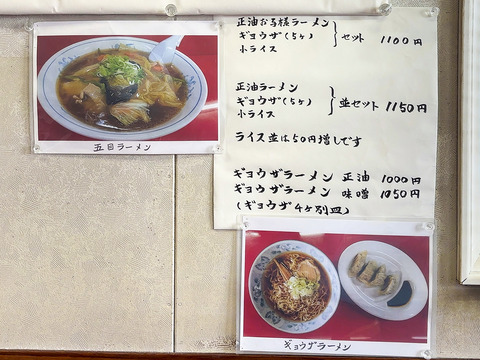 正油お子様ラーメン
ギョウザ(5ヶ)
小ライス
セット 1100円
正油ラーメン
ギョウザ(5ヶ)
小ライス
並セット 1150円
ライス並は50円増しです
ギョウザラーメン 正油 1000円
ギョウザラーメン 味噌 1050円
(ギョウザ4ヶ別皿)
五目ラーメン
ギョウザラーメン